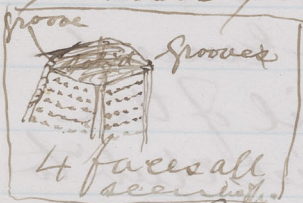 groove
grooves
4 faces all